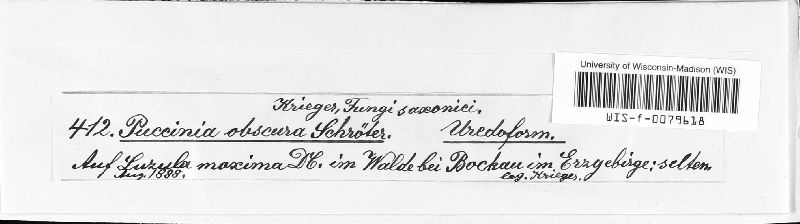 University of Wisconsin-Madison (WIS)
WIS-f-0079618
Krieger, Fungi saxonici.
412. Puccinia obscura Schröter. Uredoform.
Auf Luzula maxima DC. im Walde bei Bockau im Erzgebirge; selten.
Aug. 1888. leg. Krieger.